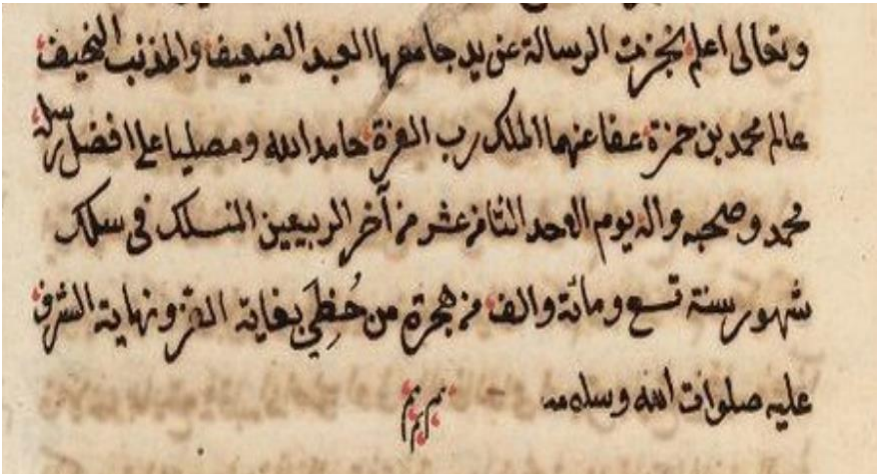 وتعالى اعلم نجزت الرسالة عن يد جامعها العبد الضعيف والمذنب النحيف
عالم محمد بن حمزة عفا عنهما الملك رب العزة حامدا لله ومصليا على افضل رسله
محمد وصحبه واله يوم الاحد الثامن عشر من آخر الربيعين المنسلك في سلك
شهور سنة تسع ومائة والف من هجرة من حُظِيَ بغاية العز ونهاية الشرف
عليه صلوات الله وسلامه